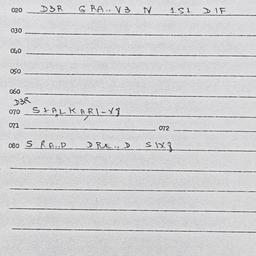 020 D3R GRA..V3 N 1S1 DIF
030
040
050
060
D3R
070 STALKARI-V3
071 072
080 S RA..D DRE..D SIX3